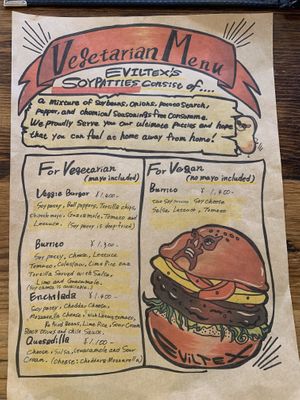 Vegetarian Menu
EVILTEX's
SOYPATTIES CONSIST OF....
a mixture of soybeans, onions, potato starch,
Pepper, and chemical seasonings free consomme.
We proudly serve you our ultimate patties and hope
that you can feel at home away from home!
For Vegetarian
(mayo included)
Veggie Burger ¥1,400
Soy patty, Bell peppers, Tortilla chips,
Guacamole, Tomato and
Lettuce. (Soy patty is deep fried)
Burrito ¥1,300
Soy patty, Cheese, Lettuce
Tomato, Coleslaw, Lime Rice and
Tortilla Served with Salsa,
Lime and Guacamole.
Enchilada ¥1,400
Soy patty, Cheddar Cheese,
Mozzarella Cheese,
Re fried Beans, Lime Rice, Sour Cream
Black Olives and Chile Sauce.
Quesadilla ¥1,100
Cheese, Salsa, Guacamole and Sour
Cream. (Cheese: Cheddar & Mozzarella)
For Vegan
(no mayo included)
Burrito ¥1,400
Soy Cheese
Salsa, Lettuce, Tomato
EVILTEX